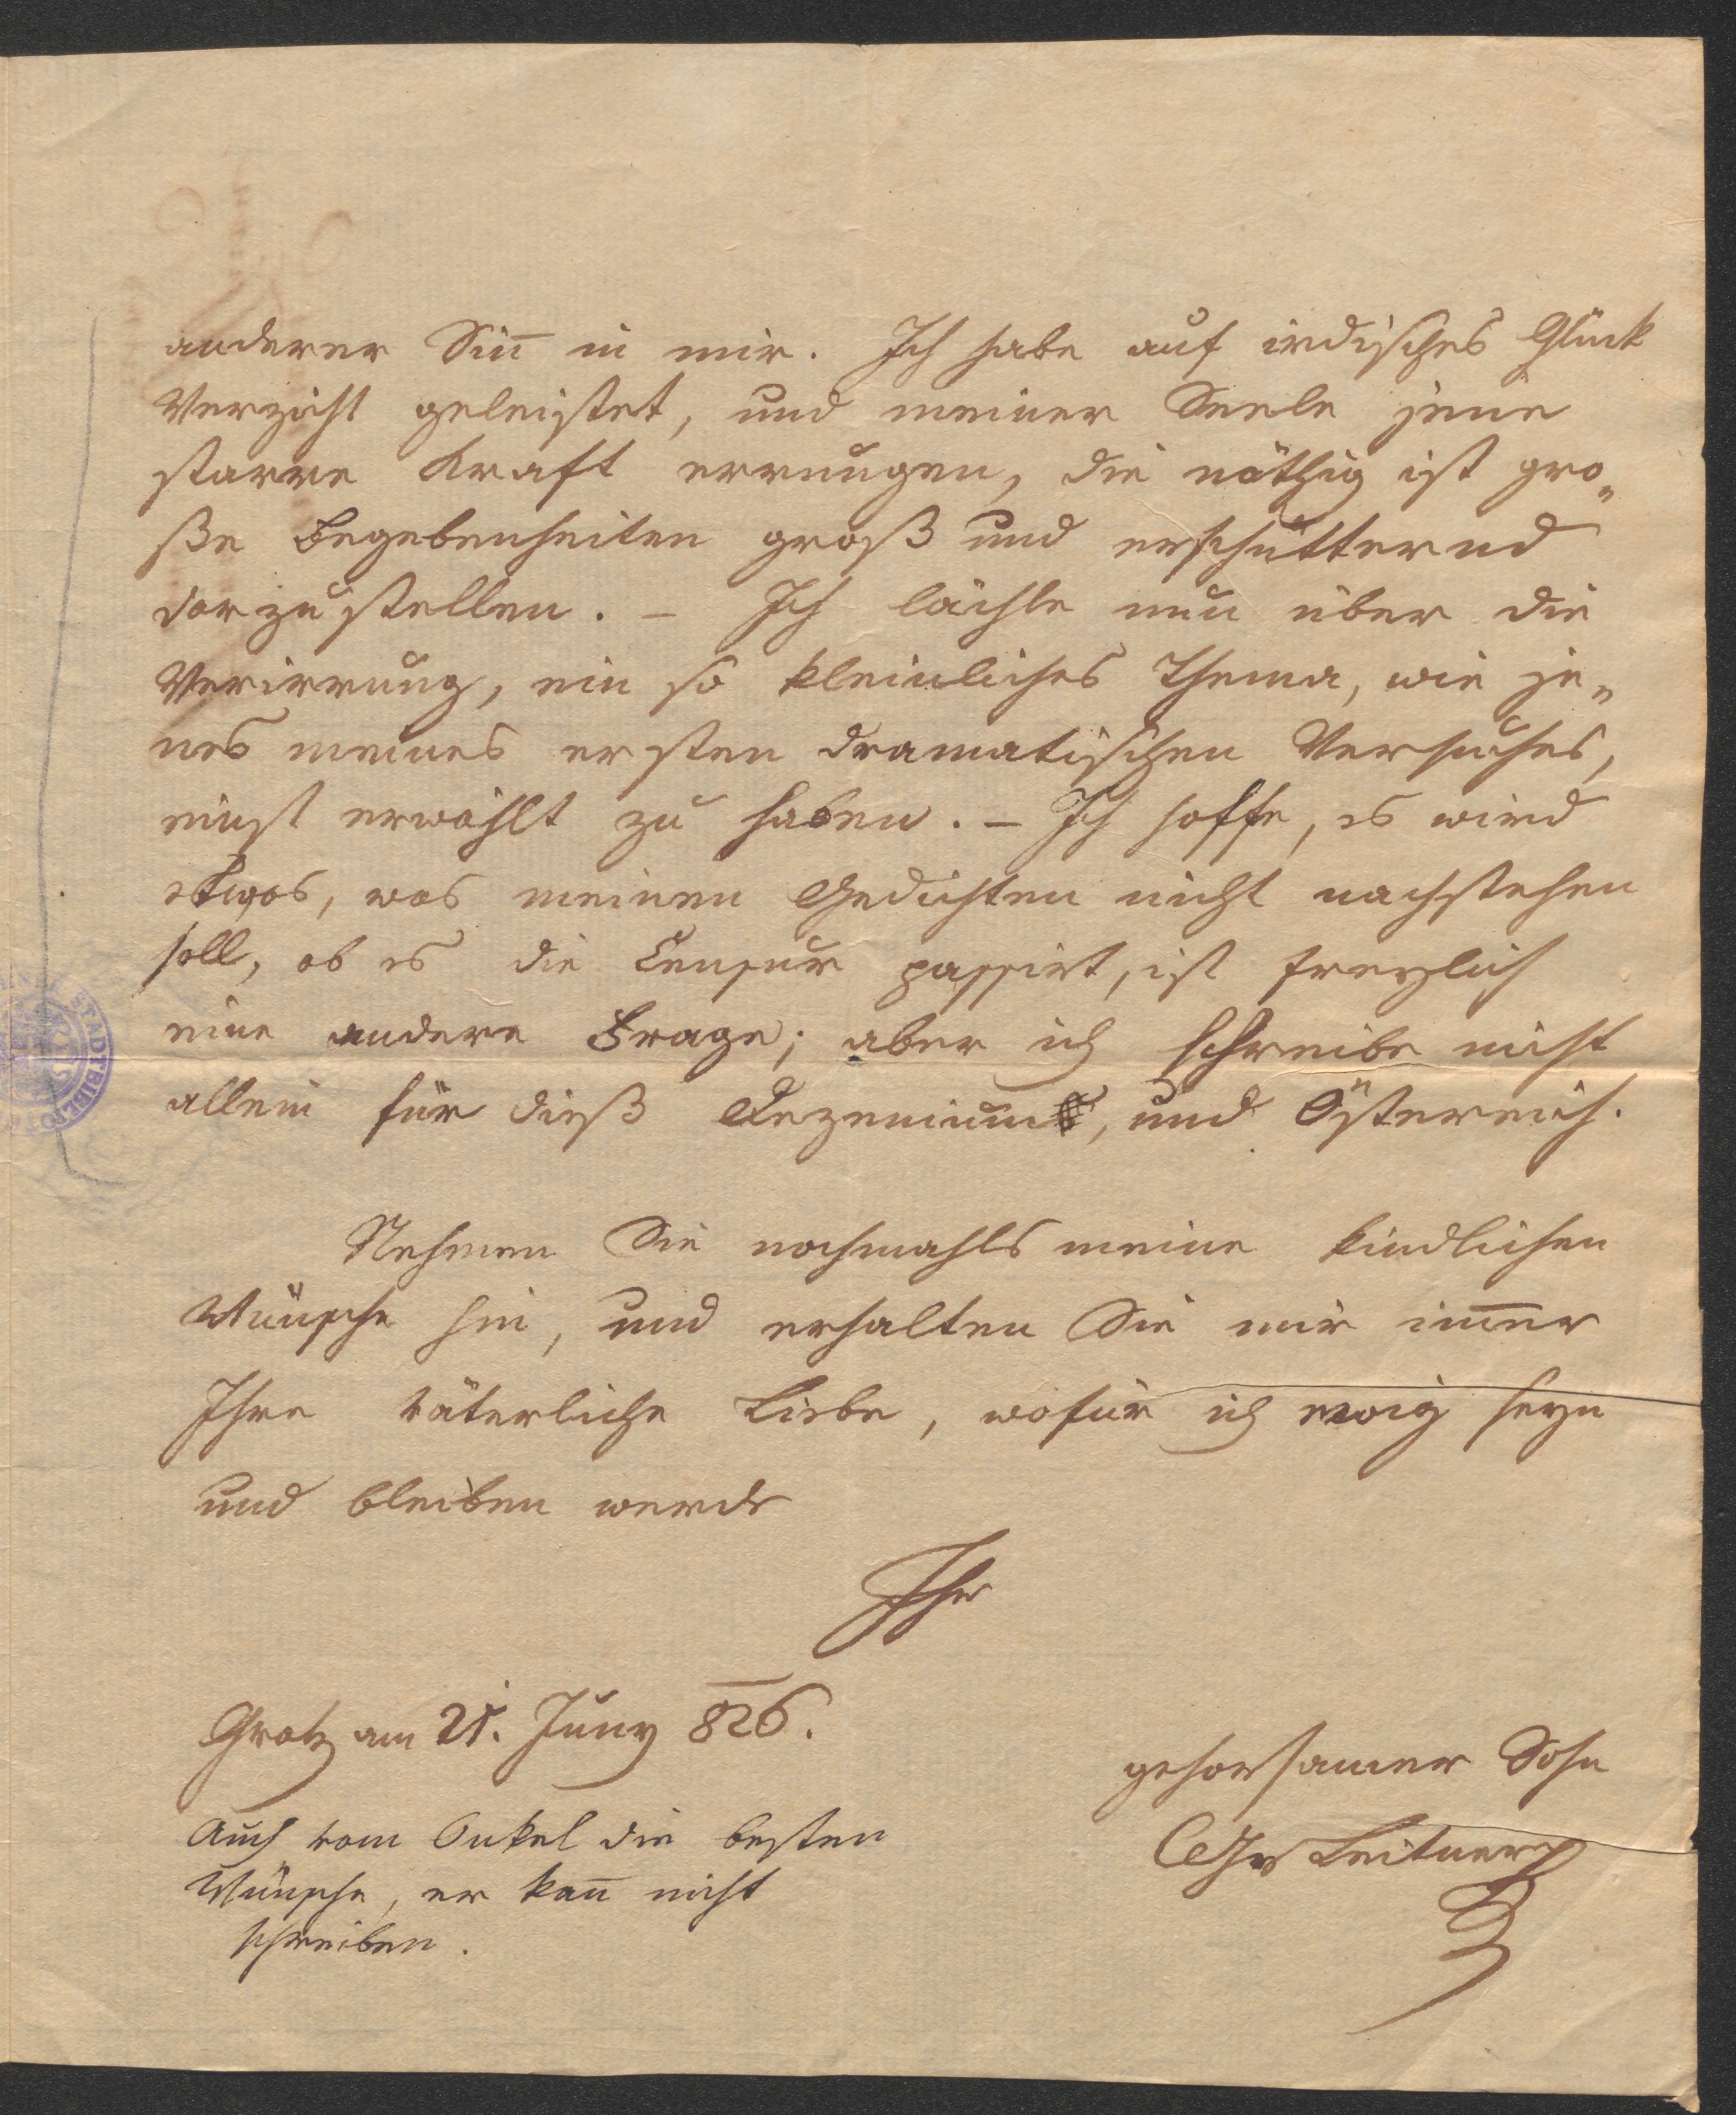 anderer Sin̅ in mir. Ich habe auf irdisches Glück
Verzicht geleistet, und meiner Seele jene
starre Kraft errungen, die nöthig ist gro„
ße Begebenheiten groß und erschütternd
darzustellen. – Ich lächle nun über die
Verirrung, ein so kleinliches Thema, wie je„
nes meines ersten dramatischen Versuches,
einst erwählt zu haben. – Ich hoffe, es wird
etwas, was meinen Gedichten nicht nachstehen
soll, ob es die Censur passirt, ist freylich
eine andere Frage; aber ich schreibe nicht
allein für dieß Dezenium, und Österreich.
Nehmen Sie nochmahls meine kindlichen
Wünsche hin, und erhalten Sie mir im̅er
Ihre väterliche Liebe, wofür ich ewig seyn
und bleiben werde
Ihr
Gratz am 21. Juny 826.
gehorsamer Sohn
CGv Leitner
Auch vom Onkel die besten
Wünsche, er kan̅ nicht
schreiben.
STADTBIBL